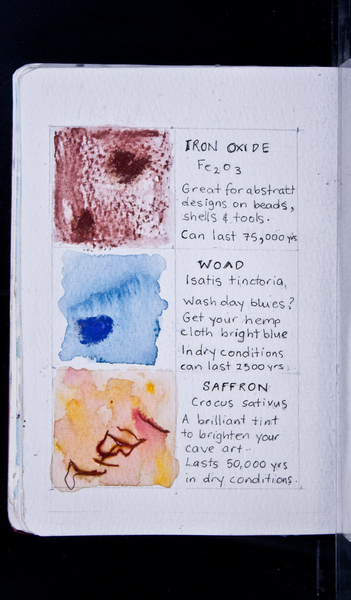 IRON OXIDE
Fe₂O₃
Great for abstract
designs on beads,
shells & tools.
Can last 75,000 yrs
WOAD
Isatis tinctoria,
Wash day blues?
Get your hemp
cloth bright blue
In dry conditions
can last 2500 yrs.
SAFFRON
Crocus sativus
A brilliant tint
to brighten your
cave art..
Lasts 50,000 yrs
in dry conditions.